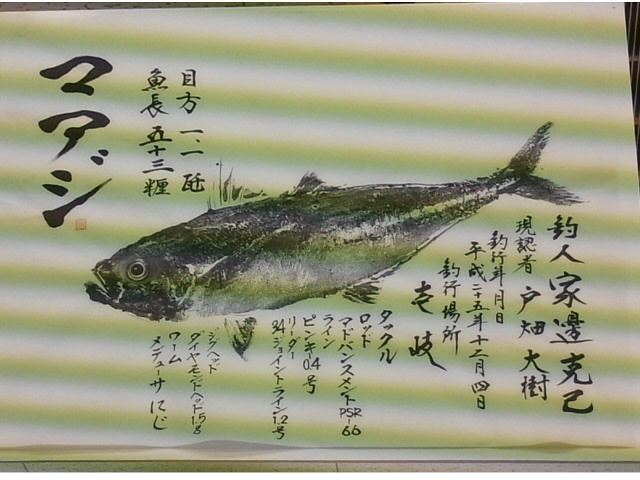 マアジ
目方 一.一瓩
魚長 五十三糎
釣人 家邊克己
現認者 戸畑大樹
釣行年月日
平成二十五年十二月四日
釣行場所
壱岐
タックル
ロッド
アドバンスメント PSR-66
ライン
ピンキー0.4号
リーダー
34.ジョイントライン1.2号
ジグヘッド
ダイヤモンドヘッド1.5g
ワーム
メデューサ にじ